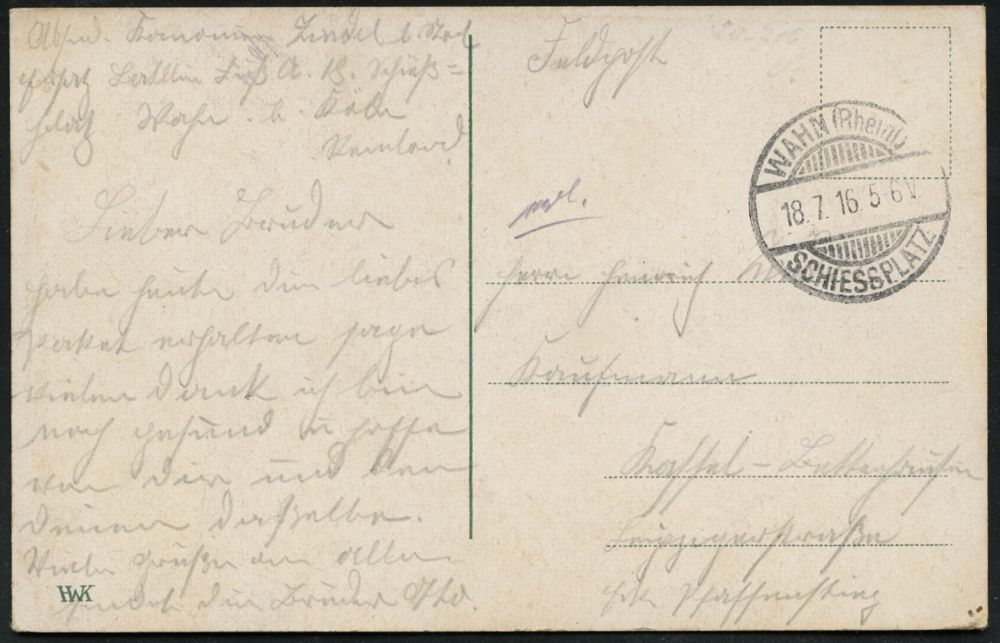 Absend. Kanonier Zindel b. 
Ersatz Batllon Fuß A. 18. Schieß=
platz Wahn b. Köln
Reinland
Lieber Bruder
habe heute dein liebes
Paket erhalten sage
vielen Dank ich bin
noch gesund u hoffe
von dir und den
deinen dasselbe.
Viele Grüße an alle
sendet dein Bruder
HWK
Feldpost
WAHN (Rheinl)
18.7.16 5-6V
SCHIESSPLATZ
Herrn Heinrich
Kaufmann
Kassel - Bettenhausen
Leipzigerstraße
Ecke